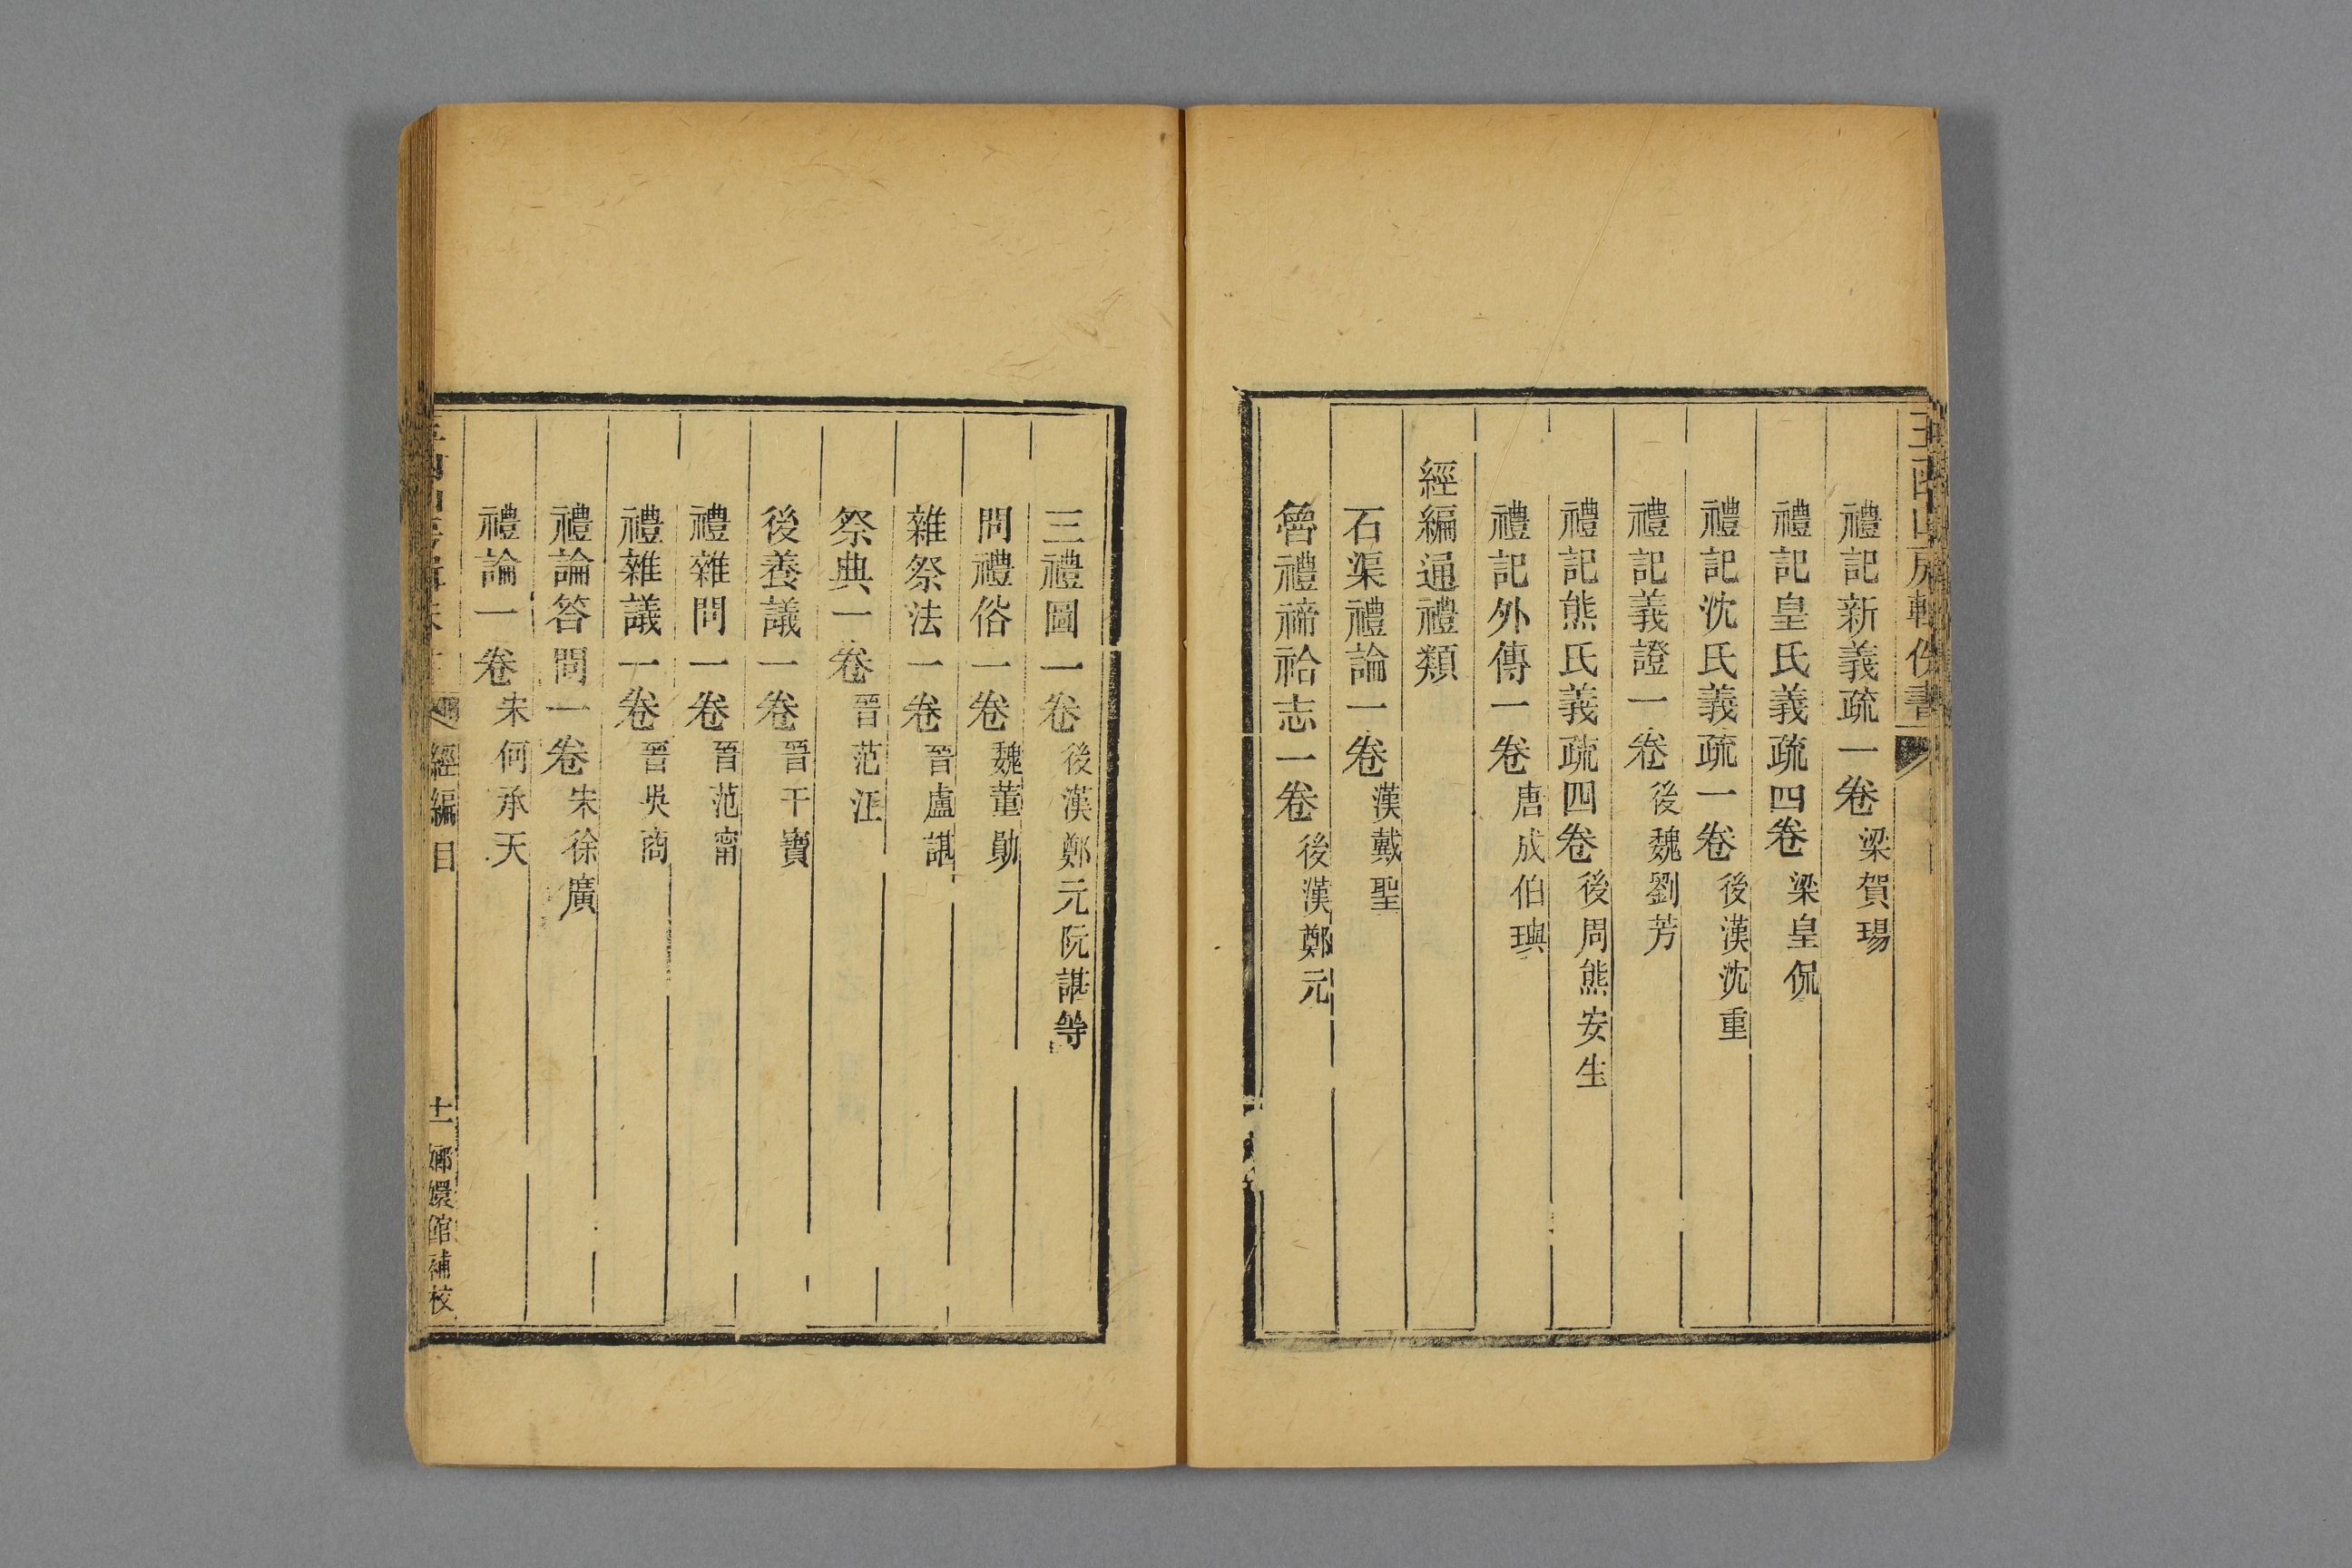 玉函山房輯佚書
禮記新義疏一卷 梁賀瑒
禮記皇氏義疏四卷 梁皇侃
禮記沈氏義疏一卷 後漢沈重
禮記義證一卷 後魏劉芳
禮記熊氏義疏四卷 後周熊安生
禮記外傳一卷 唐成伯璵
經編通禮類
石渠禮論一卷 漢戴聖
魯禮禘祫志一卷 後漢鄭元
三禮圖一卷 後漢鄭元阮諶等
問禮俗一卷 魏董勛
雜祭法一卷 晉盧諶
祭典一卷 晉范汪
後養議一卷 晉干寶
禮雜問一卷 晉范甯
禮雜議一卷 晉吳商
禮論答問一卷 宋徐廣
禮論一卷 宋何承天
經編目 十一 嫏嬛館補校